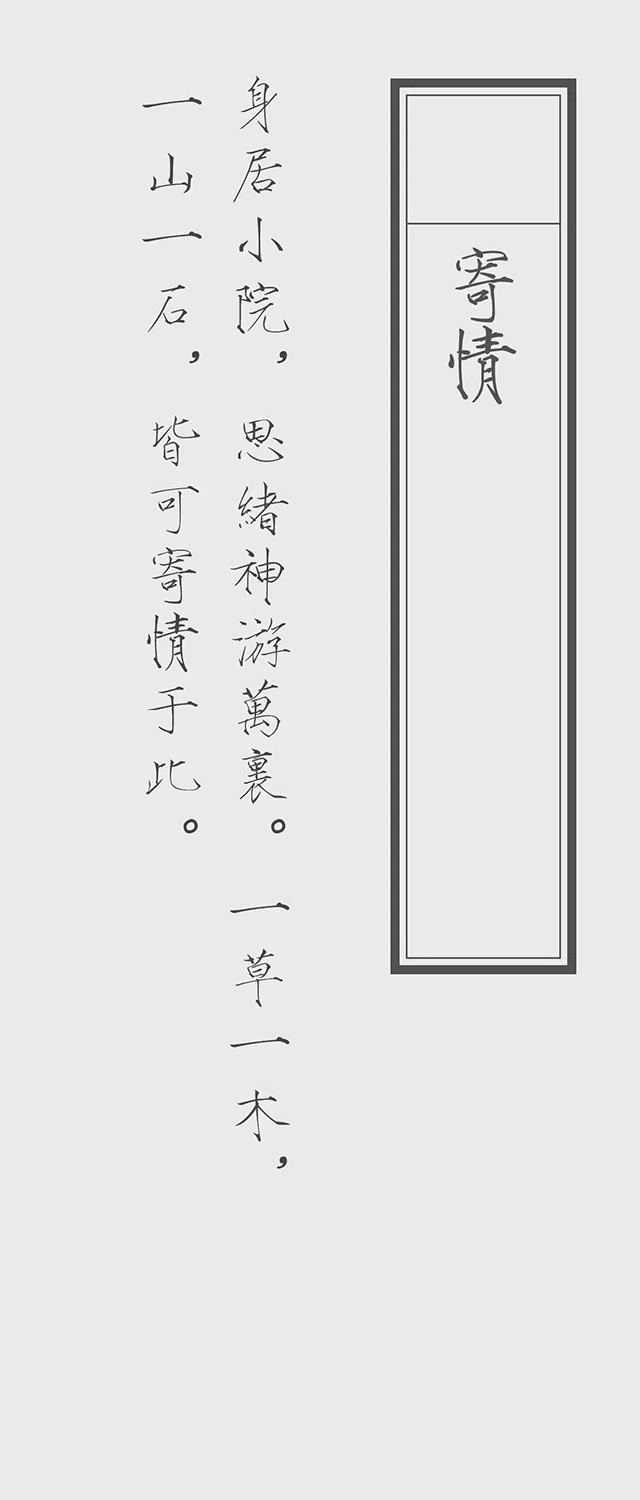 寄情
身居小院，思緒神游萬裏。一草一木，
一山一石，皆可寄情于此。